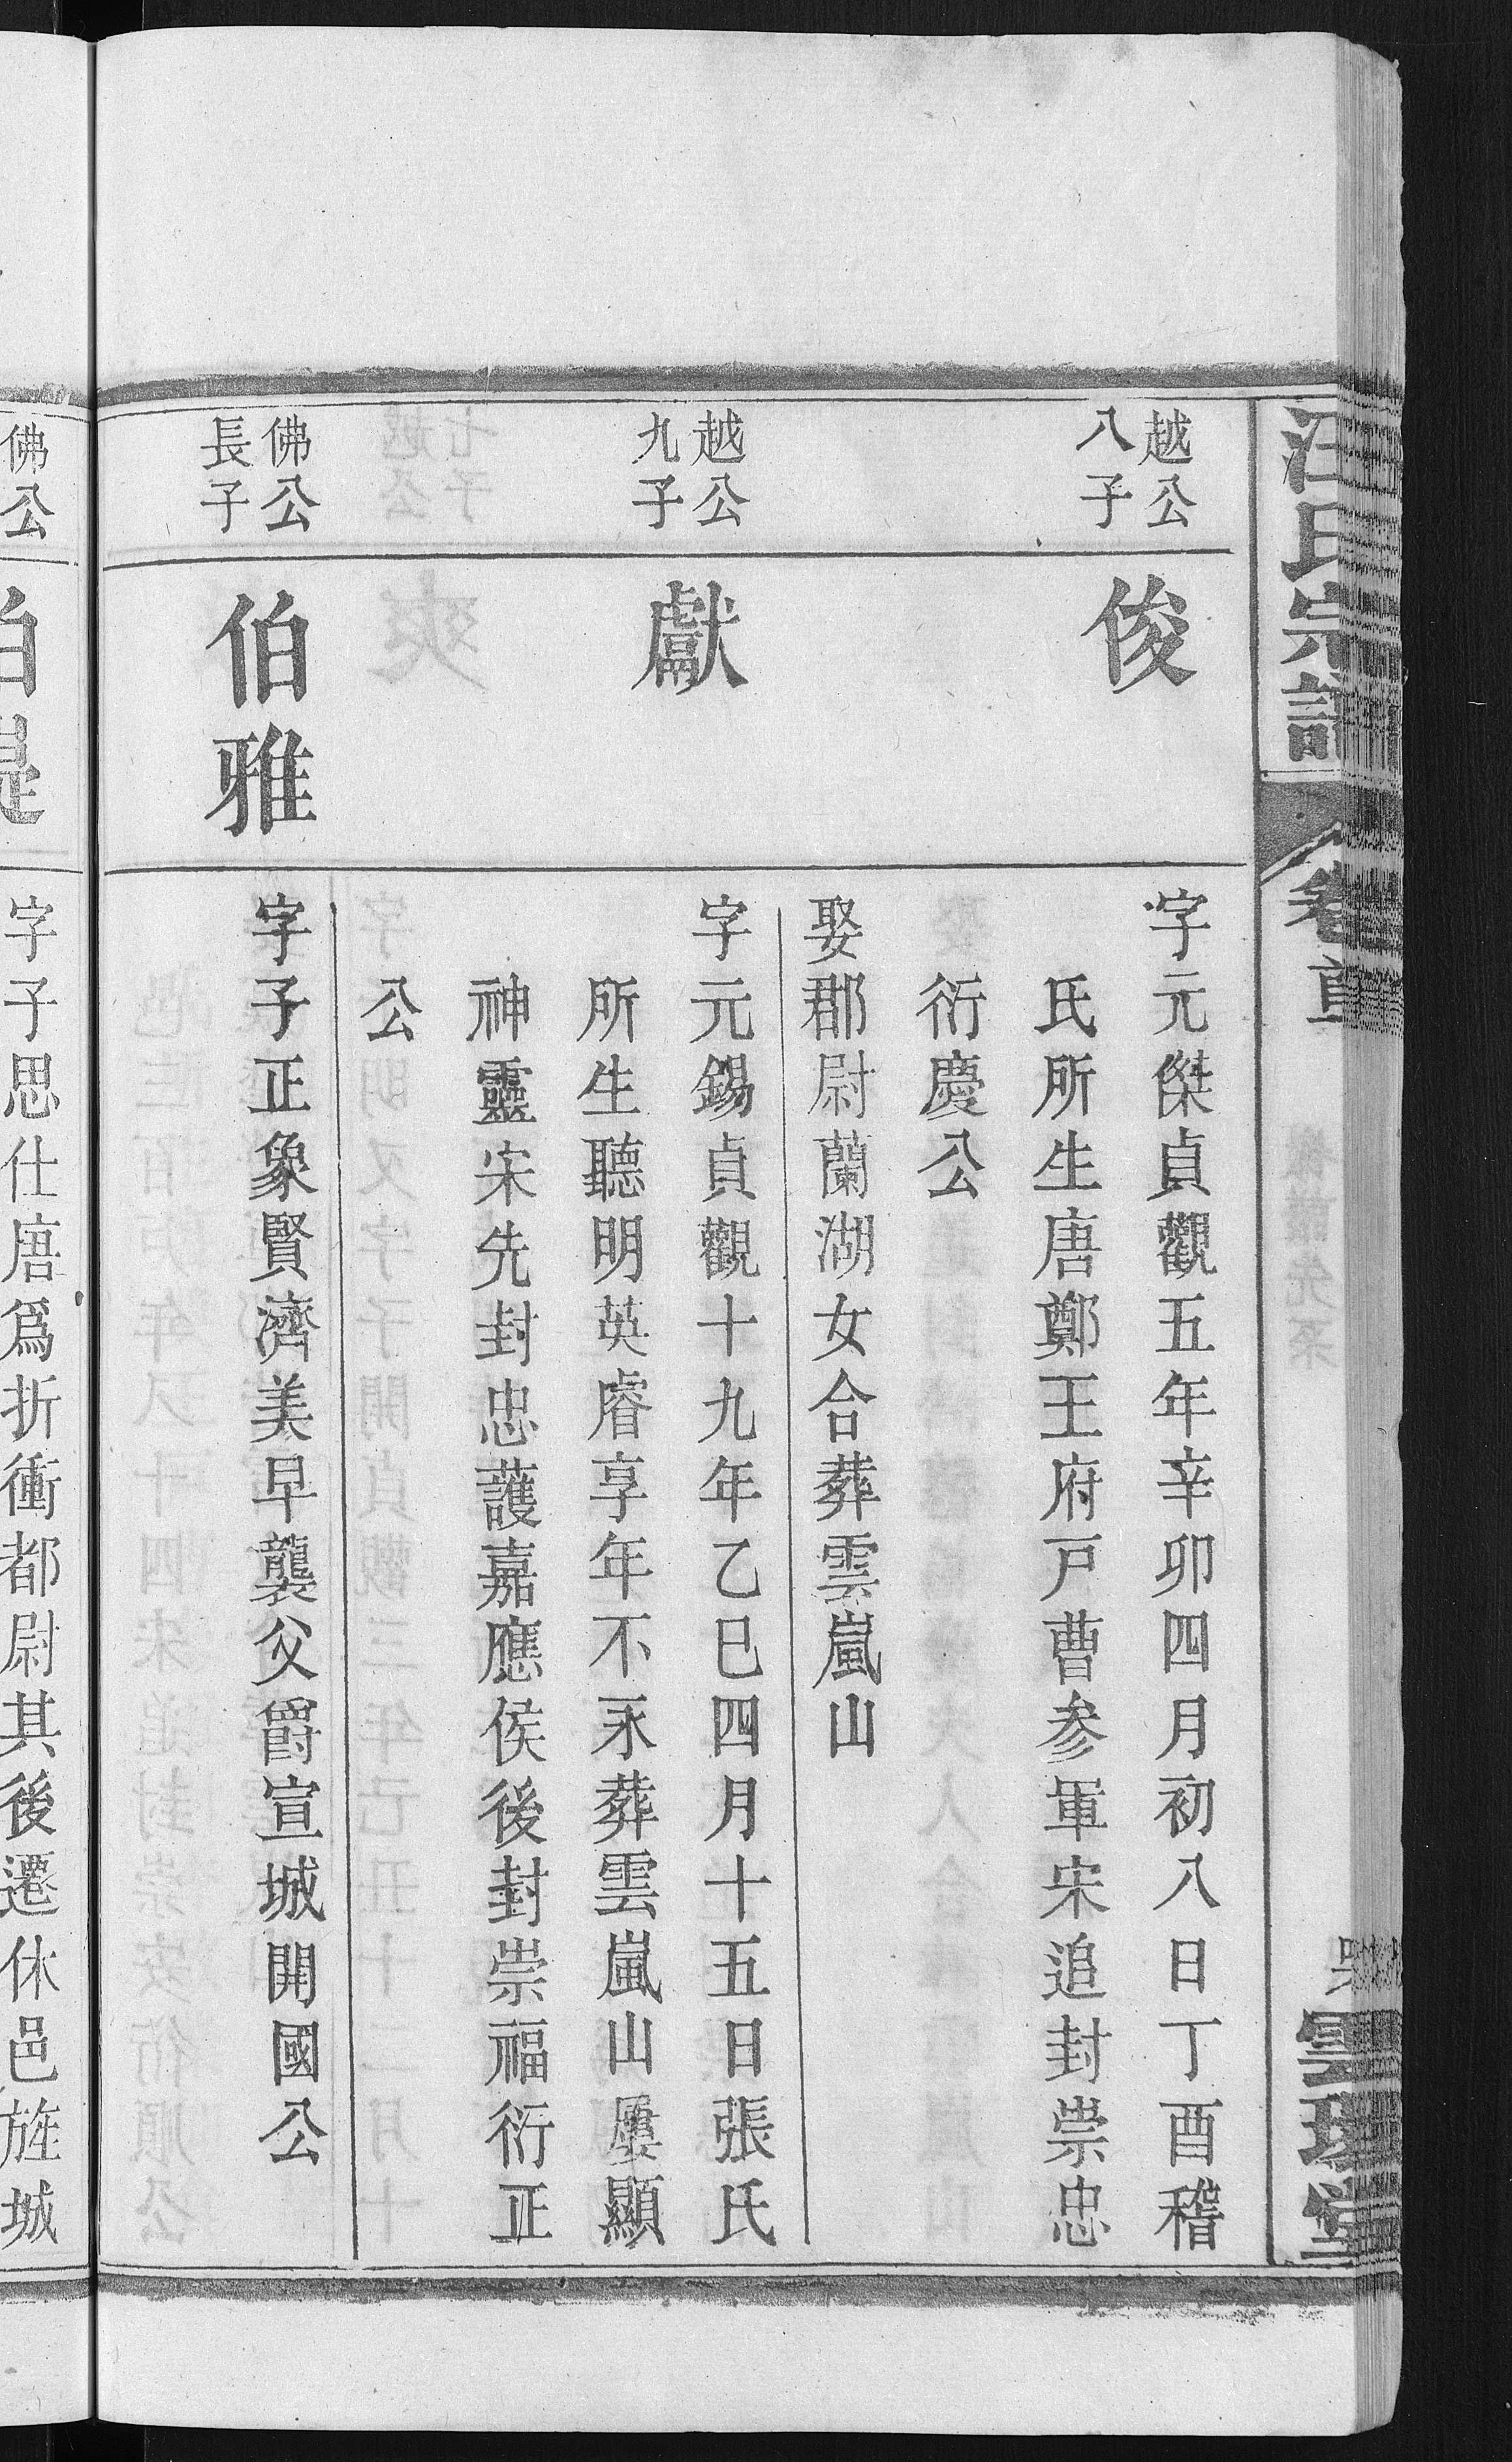 汪氏宗譜
卷首
越公
八子
俊
字元傑貞觀五年辛卯四月初八日丁酉稽
氏所生唐鄭王府戸曹参軍宋追封崇忠
衍慶公
娶郡尉蘭湖女合葬雲嵐山
越公
九子
獻
字元錫貞觀十九年乙巳四月十五日張氏
所生聽明英睿享年不永葬雲嵐山屢顯
神靈宋先封忠護嘉應侯後封崇福衍正
公
佛公
長子
伯雅
字子正象賢濟美早襲父爵宣城開國公
佛公
字子思仕唐爲折衝都尉其後遷休邑旌城